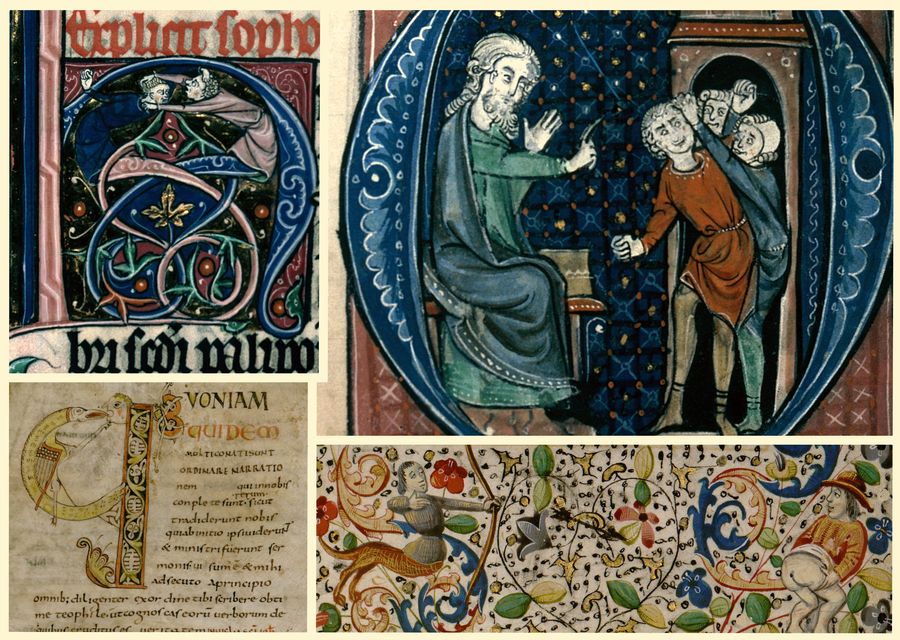 Explicit sopho
bri scdi
VONIAM
QUIDEM
MULTI CONATI SUNT
ORDINARE NARRATIO
nem qui in nobis
rerum
completę sunt sicut
tradiderunt nobis
qui ab initio ipsi uiderunt
& ministri fuerunt ser
monis ui sum ē & mihi
adsecuto a principio
omnib; diligenter ex ordine tibi scribere opti
me teophile ut cognoscas eorū uerborum de
quibus eruditus es